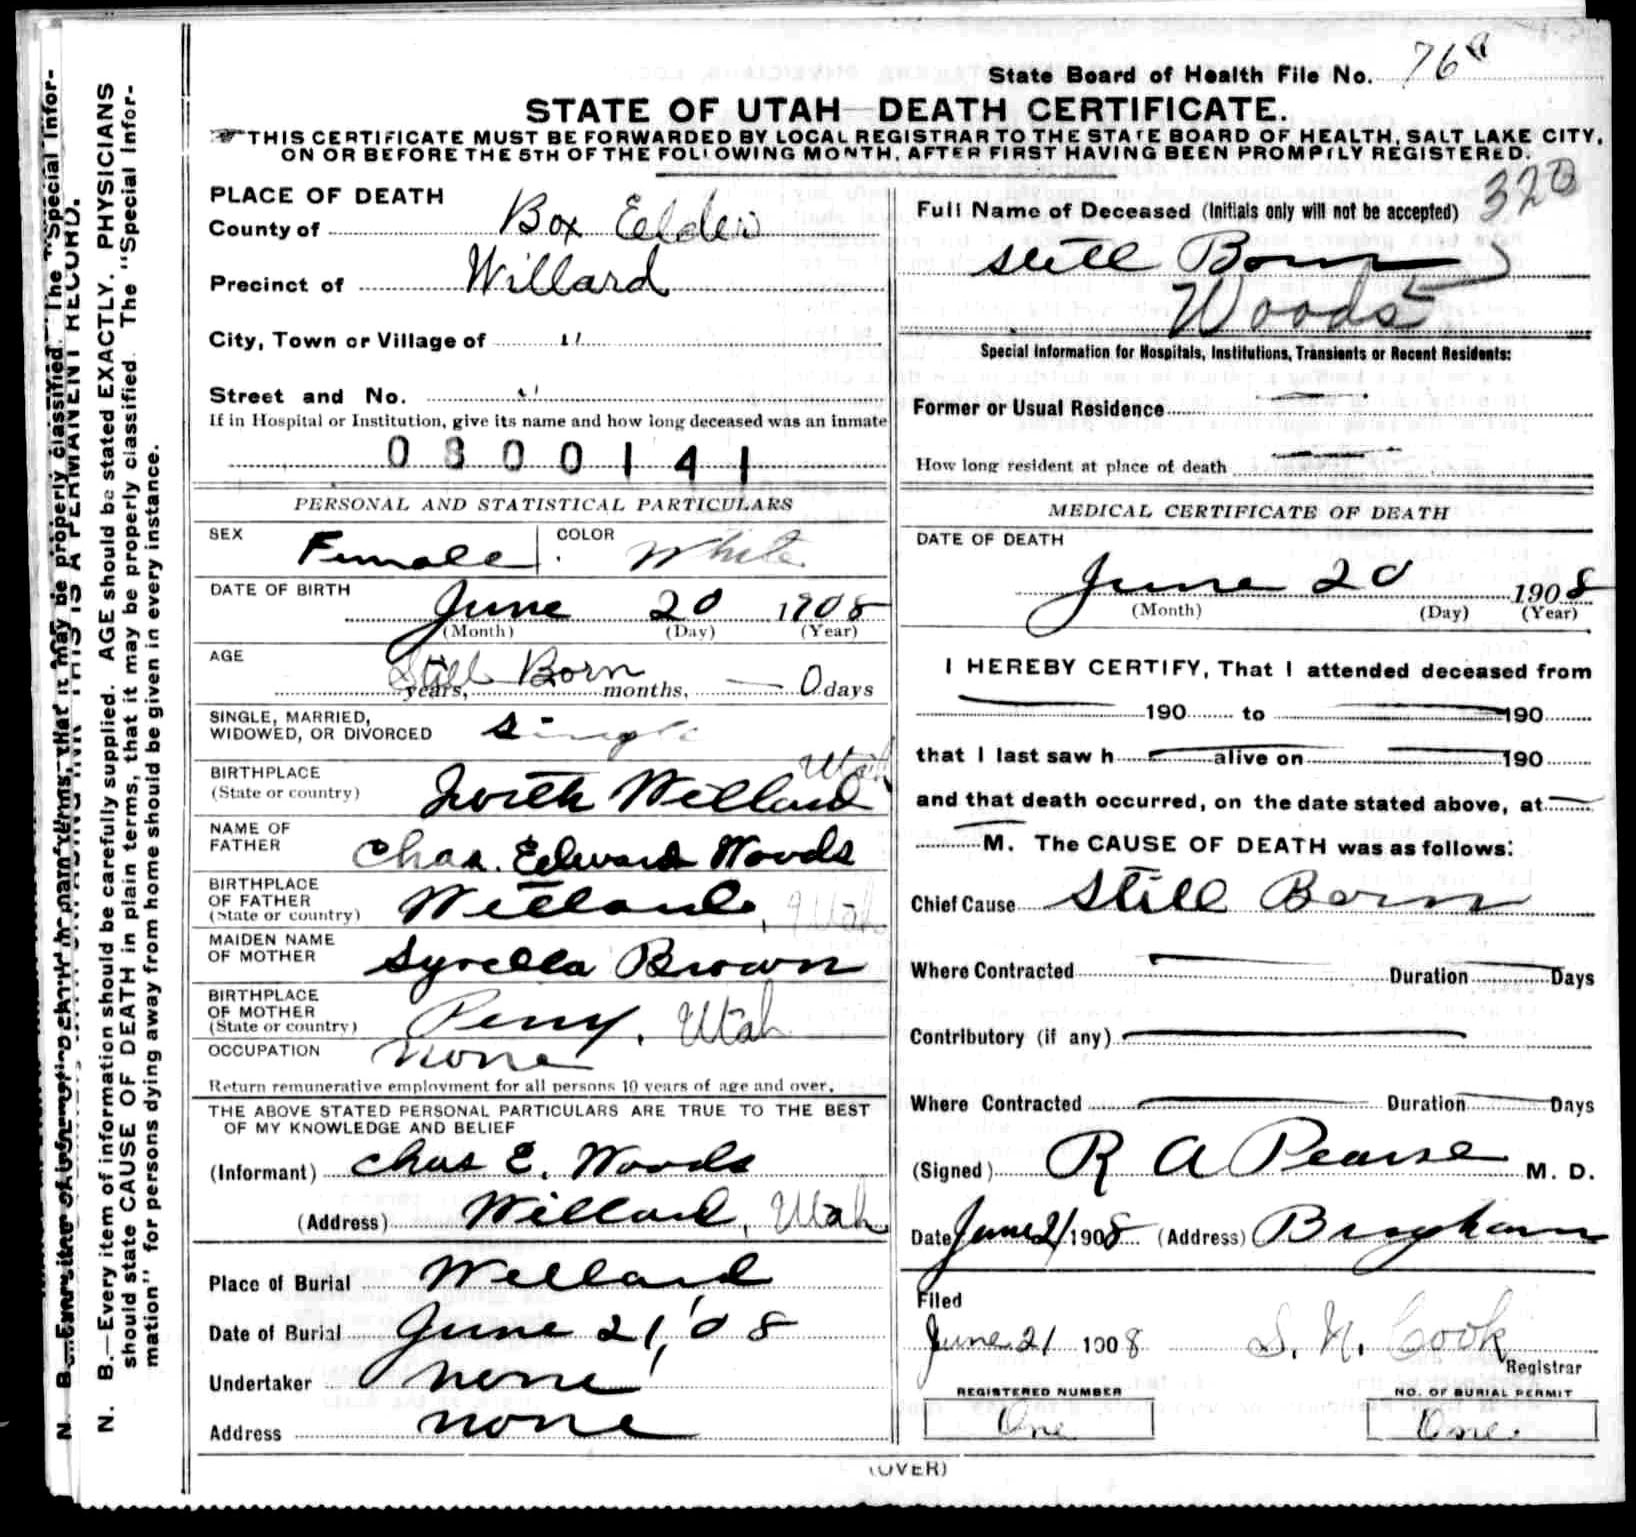 State Board of Health File No. 76a
STATE OF UTAH—DEATH CERTIFICATE.
THIS CERTIFICATE MUST BE FORWARDED BY LOCAL REGISTRAR TO THE STATE BOARD OF HEALTH, SALT LAKE CITY,
ON OR BEFORE THE 5TH OF THE FOLLOWING MONTH, AFTER FIRST HAVING BEEN PROMPTLY REGISTERED.
PLACE OF DEATH
County of Box Elder
Precinct of Willard
City, Town or Village of "
Street and No. "
If in Hospital or Institution, give its name and how long deceased was an inmate
0800141
PERSONAL AND STATISTICAL PARTICULARS
SEX Female COLOR White
DATE OF BIRTH June 20 1908
(Month) (Day) (Year)
AGE Still Born
years, months, — 0 days
SINGLE, MARRIED,
WIDOWED, OR DIVORCED Single
BIRTHPLACE Utah
(State or country) North Willard
NAME OF
FATHER Chas. Edward Woods
BIRTHPLACE
OF FATHER Willard, Utah
(State or country)
MAIDEN NAME
OF MOTHER Syrella Brown
BIRTHPLACE
OF MOTHER Perry, Utah
(State or country)
OCCUPATION none
Return remunerative employment for all persons 10 years of age and over.
THE ABOVE STATED PERSONAL PARTICULARS ARE TRUE TO THE BEST
OF MY KNOWLEDGE AND BELIEF
(Informant) Chas E. Woods
(Address) Willard, Utah
Place of Burial Willard
Date of Burial June 21, '08
Undertaker none
Address none
320
Full Name of Deceased (Initials only will not be accepted)
Still Born
Woods
Special Information for Hospitals, Institutions, Transients or Recent Residents:
Former or Usual Residence —
How long resident at place of death —
MEDICAL CERTIFICATE OF DEATH
DATE OF DEATH
June 20 1908
(Month) (Day) (Year)
I HEREBY CERTIFY, That I attended deceased from
— 190 to — 190
that I last saw h — alive on — 190
and that death occurred, on the date stated above, at —
— M. The CAUSE OF DEATH was as follows:
Chief Cause Still Born
Where Contracted — Duration — Days
Contributory (if any) —
Where Contracted — Duration — Days
(Signed) R A Pearse M. D.
Date June 21 1908 (Address) Brigham
Filed
June 21 1908 S. N. Cook
Registrar
REGISTERED NUMBER
One
NO. OF BURIAL PERMIT
One
(OVER)
N. B.—Every item of information should be carefully supplied. AGE should be stated EXACTLY. PHYSICIANS
should state CAUSE OF DEATH in plain terms, that it may be properly classified. The "Special Infor-
mation" for persons dying away from home should be given in every instance.